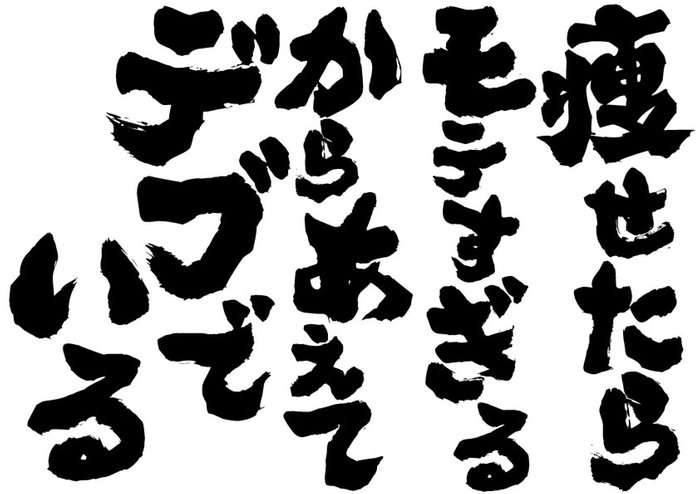 痩せたら
モテすぎる
からあえて
デブで
いる